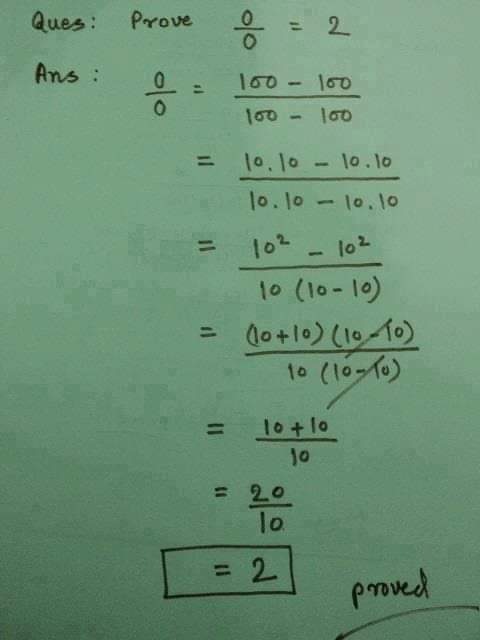 Ques: Prove 0/0 = 2
Ans: 0/0 = 100 - 100 / 100 - 100
= 10.10 - 10.10 / 10.10 - 10.10
= 10² - 10² / 10 (10 - 10)
= (10+10) (10-10) / 10 (10-10)
= 10 + 10 / 10
= 20 / 10
= 2
proved